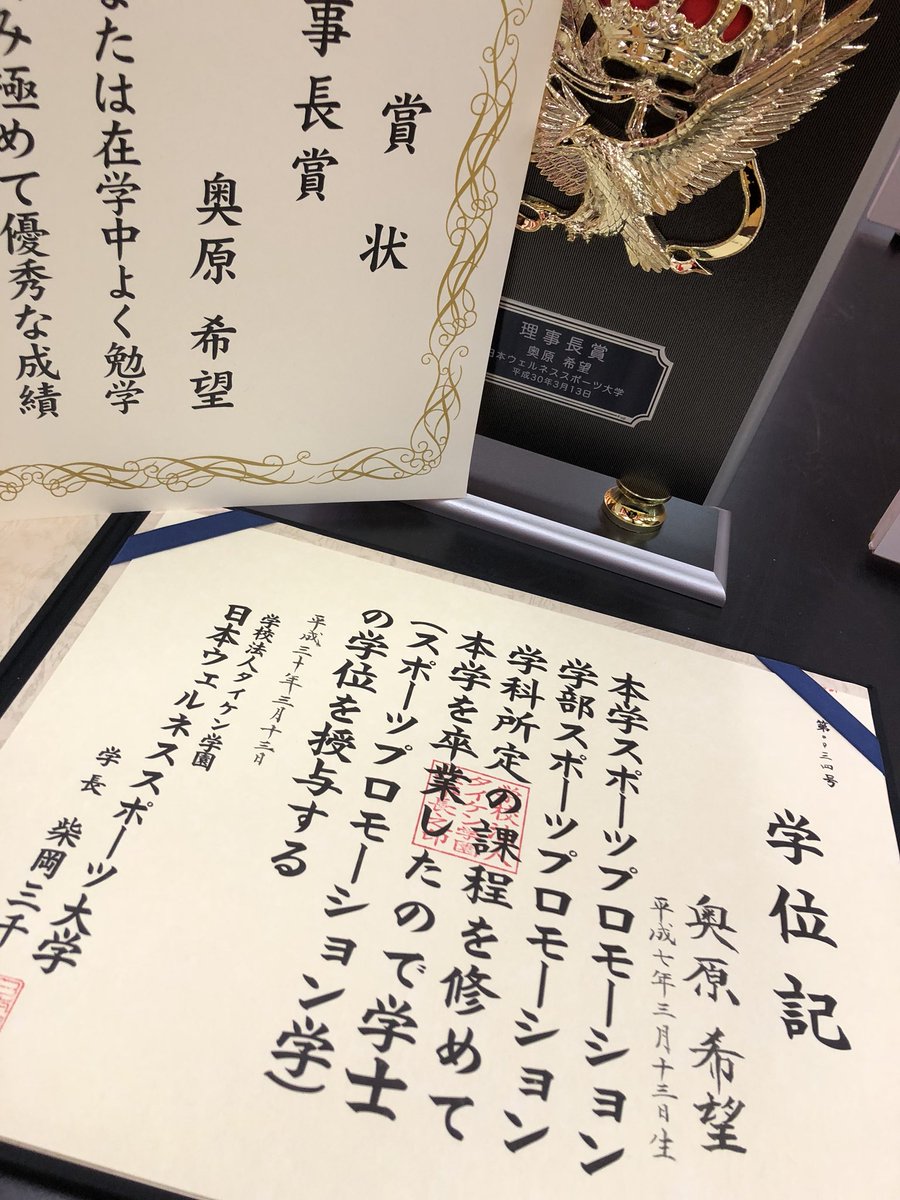 賞状
事長賞
奥原 希望
なたは在学中よく勉学
み極めて優秀な成績
理事長賞
奥原 希望
日本ウェルネススポーツ大学
平成30年3月13日
第〇九三四号
学位記
奥原 希望
平成七年三月十三日生
本学スポーツプロモーション
学部スポーツプロモーション
学科所定の課程を修めて
本学を卒業したので学士
(スポーツプロモーション学)
の学位を授与する
平成三十年三月十三日
学校法人タイケン学園
日本ウェルネススポーツ大学
学長 柴岡三千